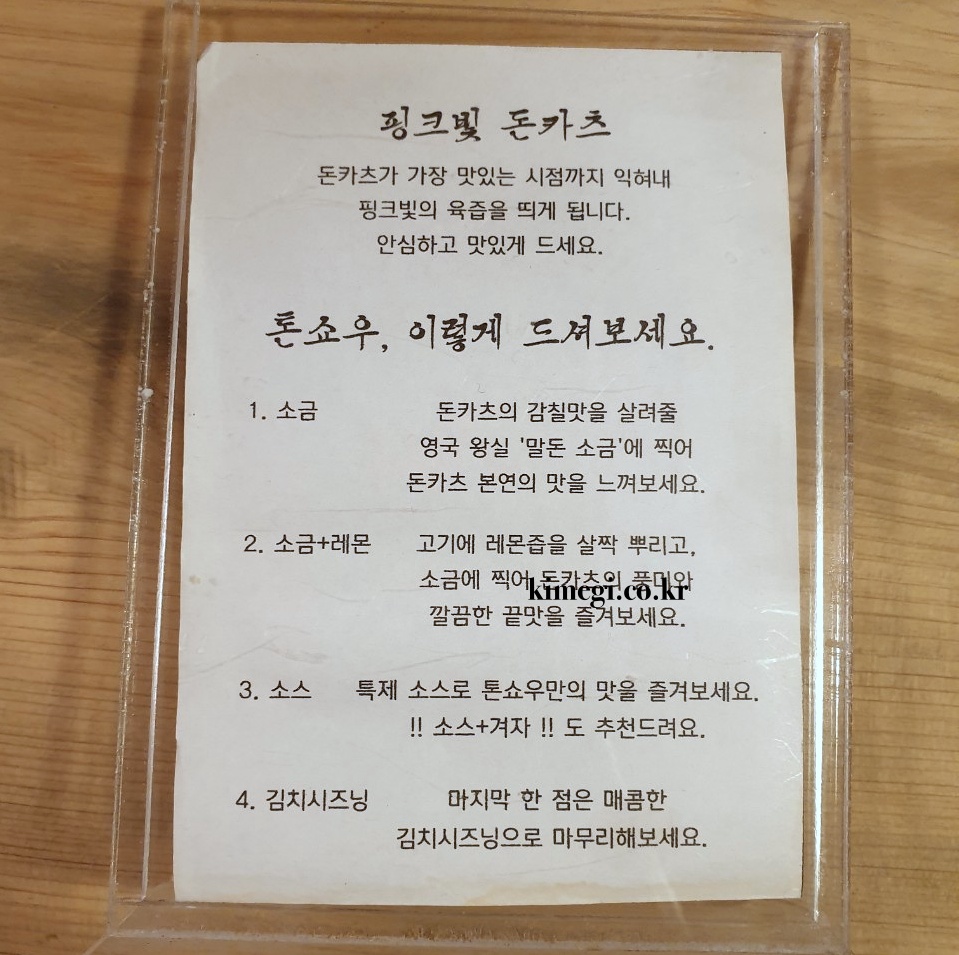 핑크빛 돈카츠
돈카츠가 가장 맛있는 시점까지 익혀내
핑크빛의 육즙을 띄게 됩니다.
안심하고 맛있게 드세요.
톤쇼우, 이렇게 드셔보세요.
1. 소금 돈카츠의 감칠맛을 살려줄
영국 왕실 '말돈 소금'에 찍어
돈카츠 본연의 맛을 느껴보세요.
2. 소금+레몬 고기에 레몬즙을 살짝 뿌리고,
소금에 찍어 돈카츠의 풍미와
kimegi.co.kr
깔끔한 끝맛을 즐겨보세요.
3. 소스 특제 소스로 톤쇼우만의 맛을 즐겨보세요.
!! 소스+겨자 !! 도 추천드려요.
4. 김치시즈닝 마지막 한 점은 매콤한
김치시즈닝으로 마무리해보세요.